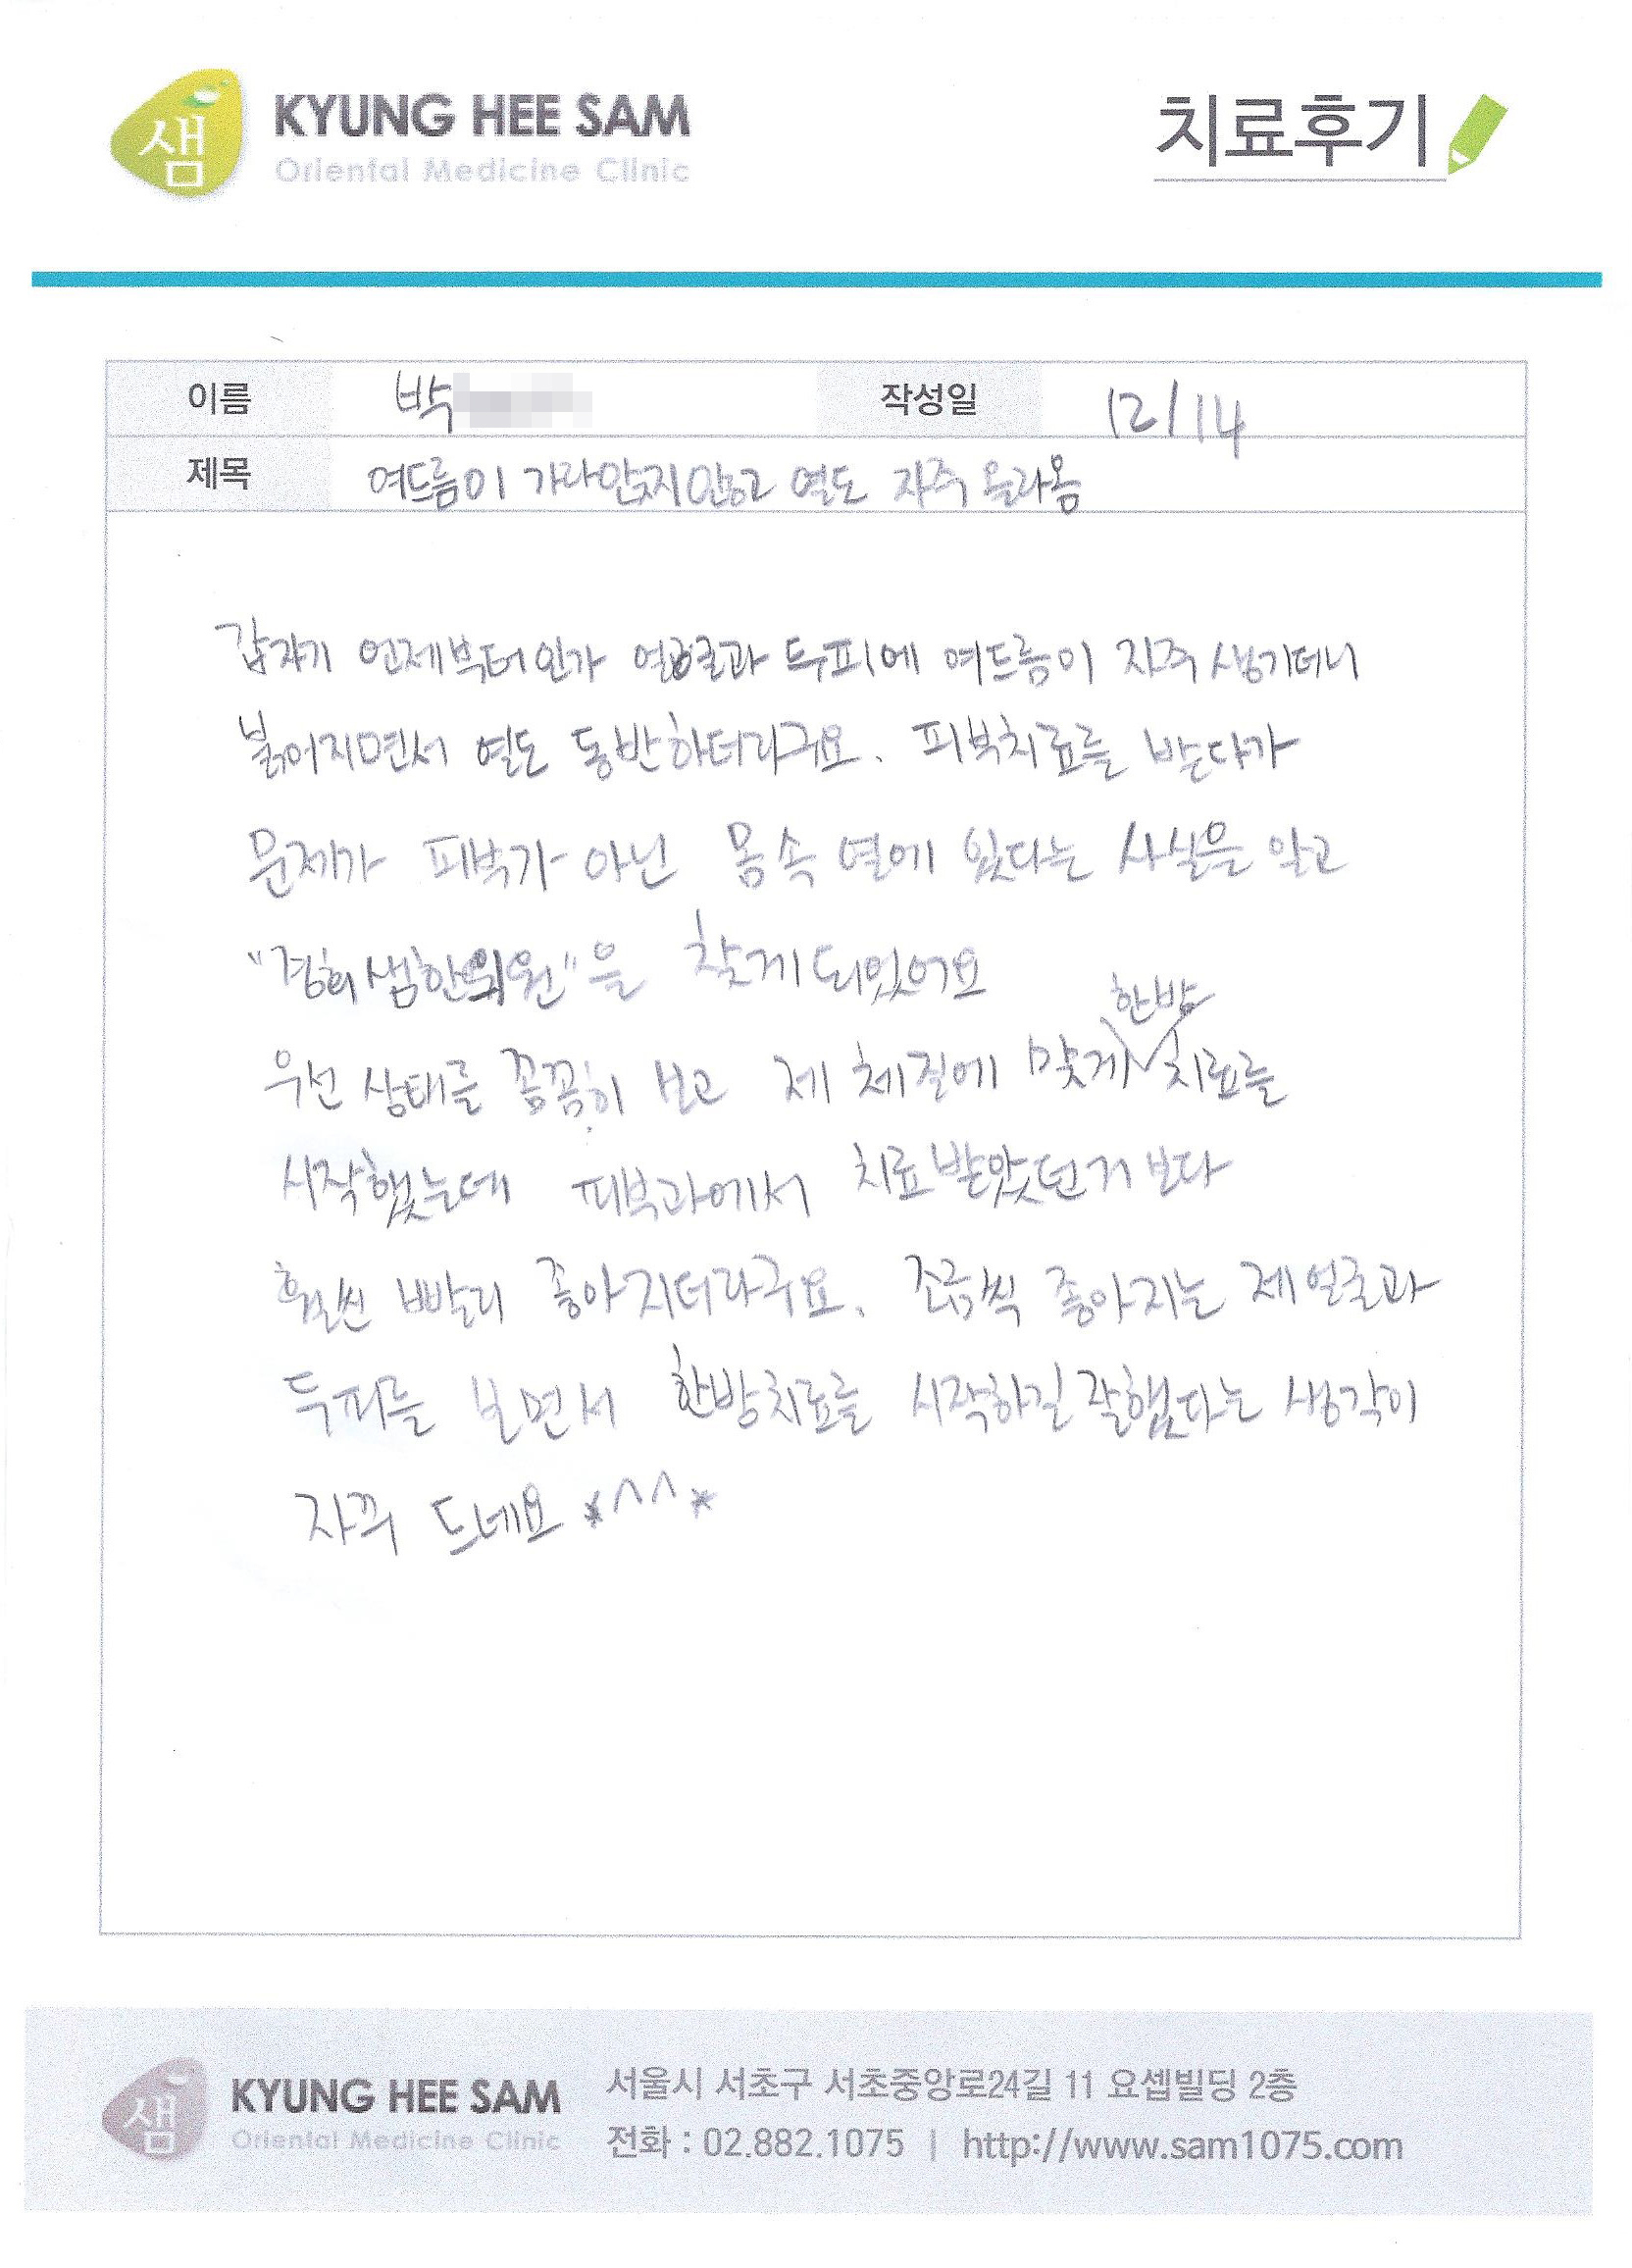 샘 KYUNG HEE SAM
Oriental Medicine Clinic
치료후기
이름 박 작성일 12/14
제목 여드름이 가라앉지않고 열도 자주 올라옴
갑자기 언제부터인가 얼굴과 두피에 여드름이 자주 생기더니
붉어지면서 열도 동반하더라구요. 피부치료를 받다가
문제가 피부가 아닌 몸속 열에 있다는 사실을 알고
"경희샘한의원"을 찾게되었어요
우선 상태를 꼼꼼히 보고 제 체질에 맞게 한방 치료를
시작했는데 피부과에서 치료받았던거 보다
훨씬 빨리 좋아지더라구요. 조금씩 좋아지는 제얼굴과
두피를 보면서 한방치료를 시작하길 잘했다는 생각이
자꾸 드네요 *^^*
샘 KYUNG HEE SAM
Oriental Medicine Clinic
서울시 서초구 서초중앙로24길 11 요셉빌딩 2층
전화 : 02.882.1075 | http://www.sam1075.com